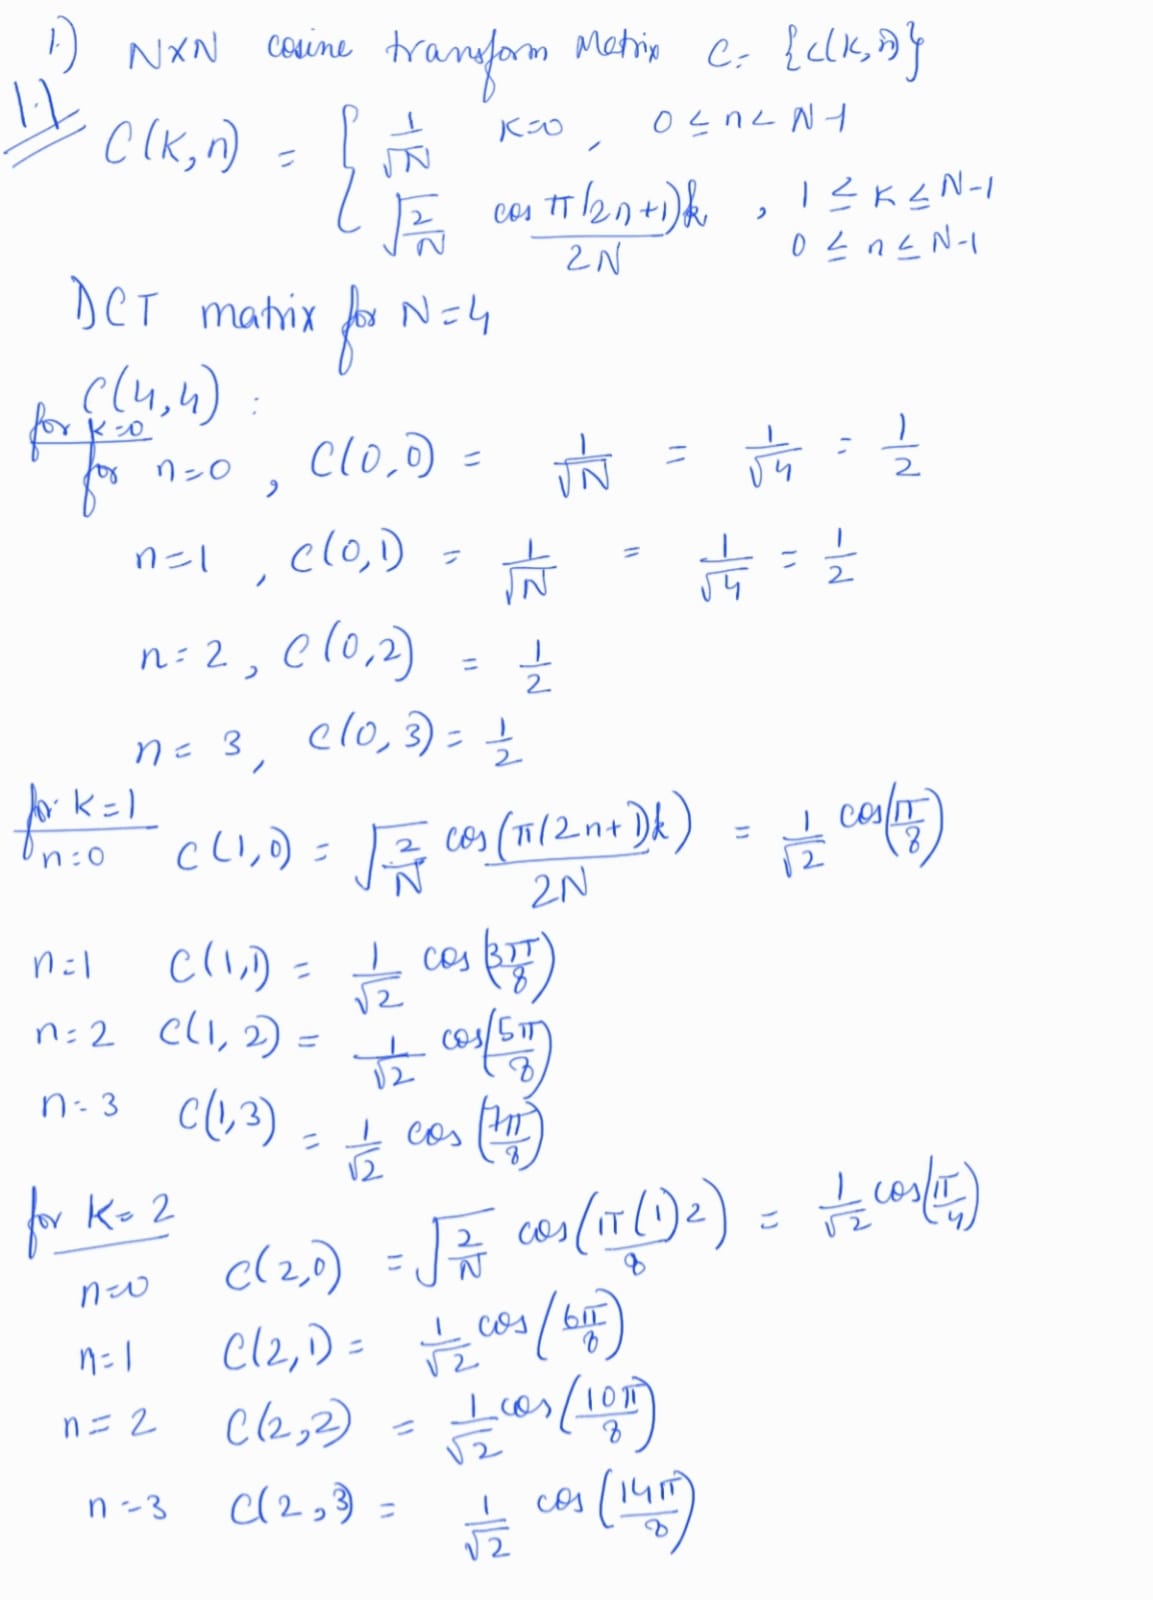 1.) N×N cosine transform Matrix C = {c(k,n)}
1.1
C(k,n) = { 1/√N K=0, 0 ≤ n < N-1
√(2/N) cos π(2n+1)k / 2N, 1 ≤ k ≤ N-1
0 ≤ n ≤ N-1
DCT matrix for N=4
C(4,4) :
for k=0
for n=0, C(0,0) = 1/√N = 1/√4 = 1/2
n=1, C(0,1) = 1/√N = 1/√4 = 1/2
n=2, C(0,2) = 1/2
n=3, C(0,3) = 1/2
for k=1
n=0 C(1,0) = √(2/N) cos(π(2n+1)k) / 2N = 1/√2 cos(π/8)
n=1 C(1,1) = 1/√2 cos(3π/8)
n=2 C(1,2) = 1/√2 cos(5π/8)
n=3 C(1,3) = 1/√2 cos(7π/8)
for k=2
n=0 C(2,0) = √(2/N) cos(π(1)2 / 8) = 1/√2 cos(π/4)
n=1 C(2,1) = 1/√2 cos(6π/8)
n=2 C(2,2) = 1/√2 cos(10π/8)
n=3 C(2,3) = 1/√2 cos(14π/8)